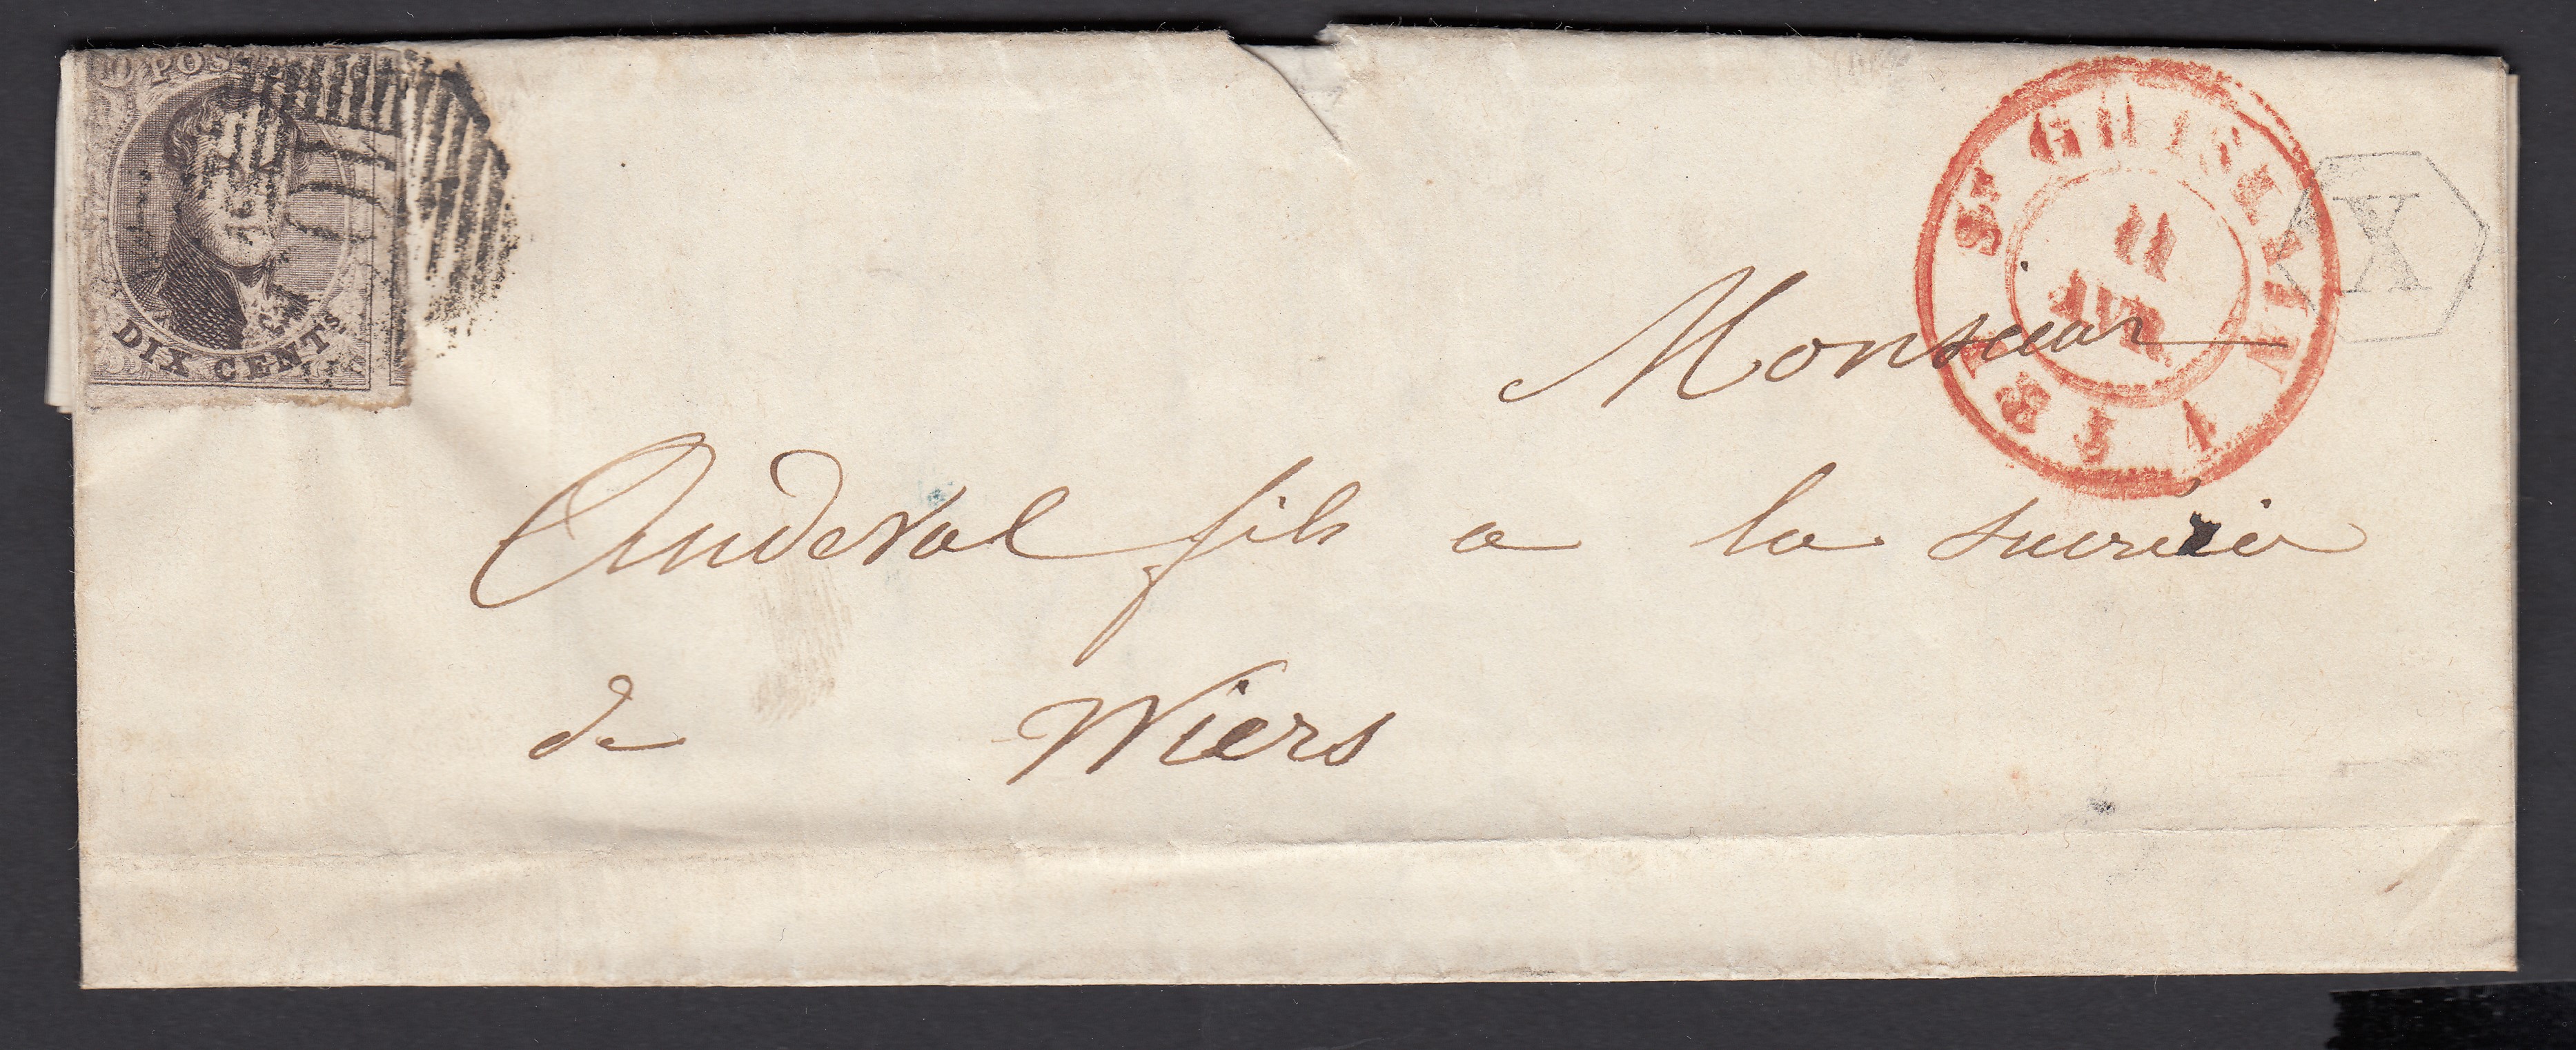 10 POS
DIX CENTS
101
ST GHISLAIN
11
AVR.
1851
X
Monsieur
Auderal fils a la sucrérie
de Wiers